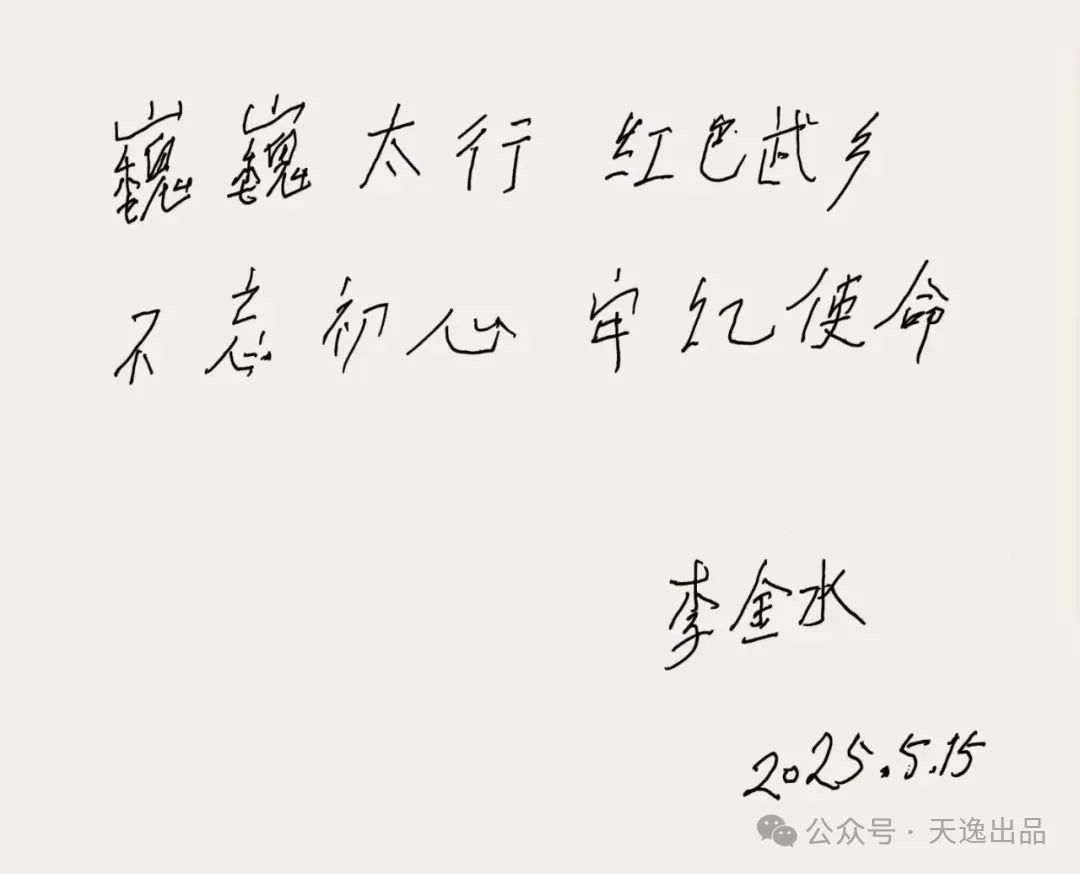 巍巍太行 红色武乡
不忘初心 牢记使命
李金水
2025.5.15
公众号 · 天逸出品